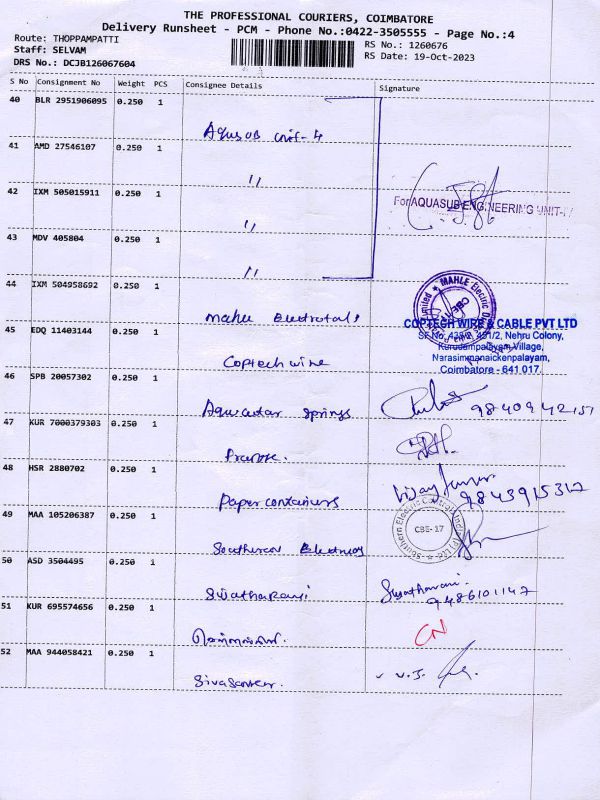 THE PROFESSIONAL COURIERS, COIMBATORE
Delivery Runsheet - PCM - Phone No.:0422-3505555 - Page No.:4
Route: THOPPAMPATTI
RS No.: 1260676
Staff: SELVAM
RS Date: 19-Oct-2023
DRS No.: DCJB126067604
S No Consignment No Weight PCS Consignee Details Signature
40 BLR 2951906095 0.250 1
Aquasub unit-4
41 AMD 27546107 0.250 1
"
42 IXM 505015911 0.250 1
For AQUASUB ENGINEERING UNIT-
"
43 MDV 405804 0.250 1
"
44 IXM 504958692 0.250 1
MAHLE Electric
Mahle
COPTECH WIRE & CABLE PVT LTD
45 EDQ 11403144 0.250 1
Nehru Colony,
Kurudampalayam Village,
Narasimmanaickenpalayam,
Coptech wire
Coimbatore - 641 017.
46 SPB 20057302 0.250 1
Springs
47 KUR 7000379303 0.250 1
48 HSR 2880702 0.250 1
Vijay Kumar
Paper containers
9843915312
49 MAA 105206387 0.250 1
CBE-17
Southern
50 ASD 3504495 0.250 1
Swatharani
9486101147
51 KUR 695574656 0.250 1
CN
52 MAA 944058421 0.250 1
V.J.